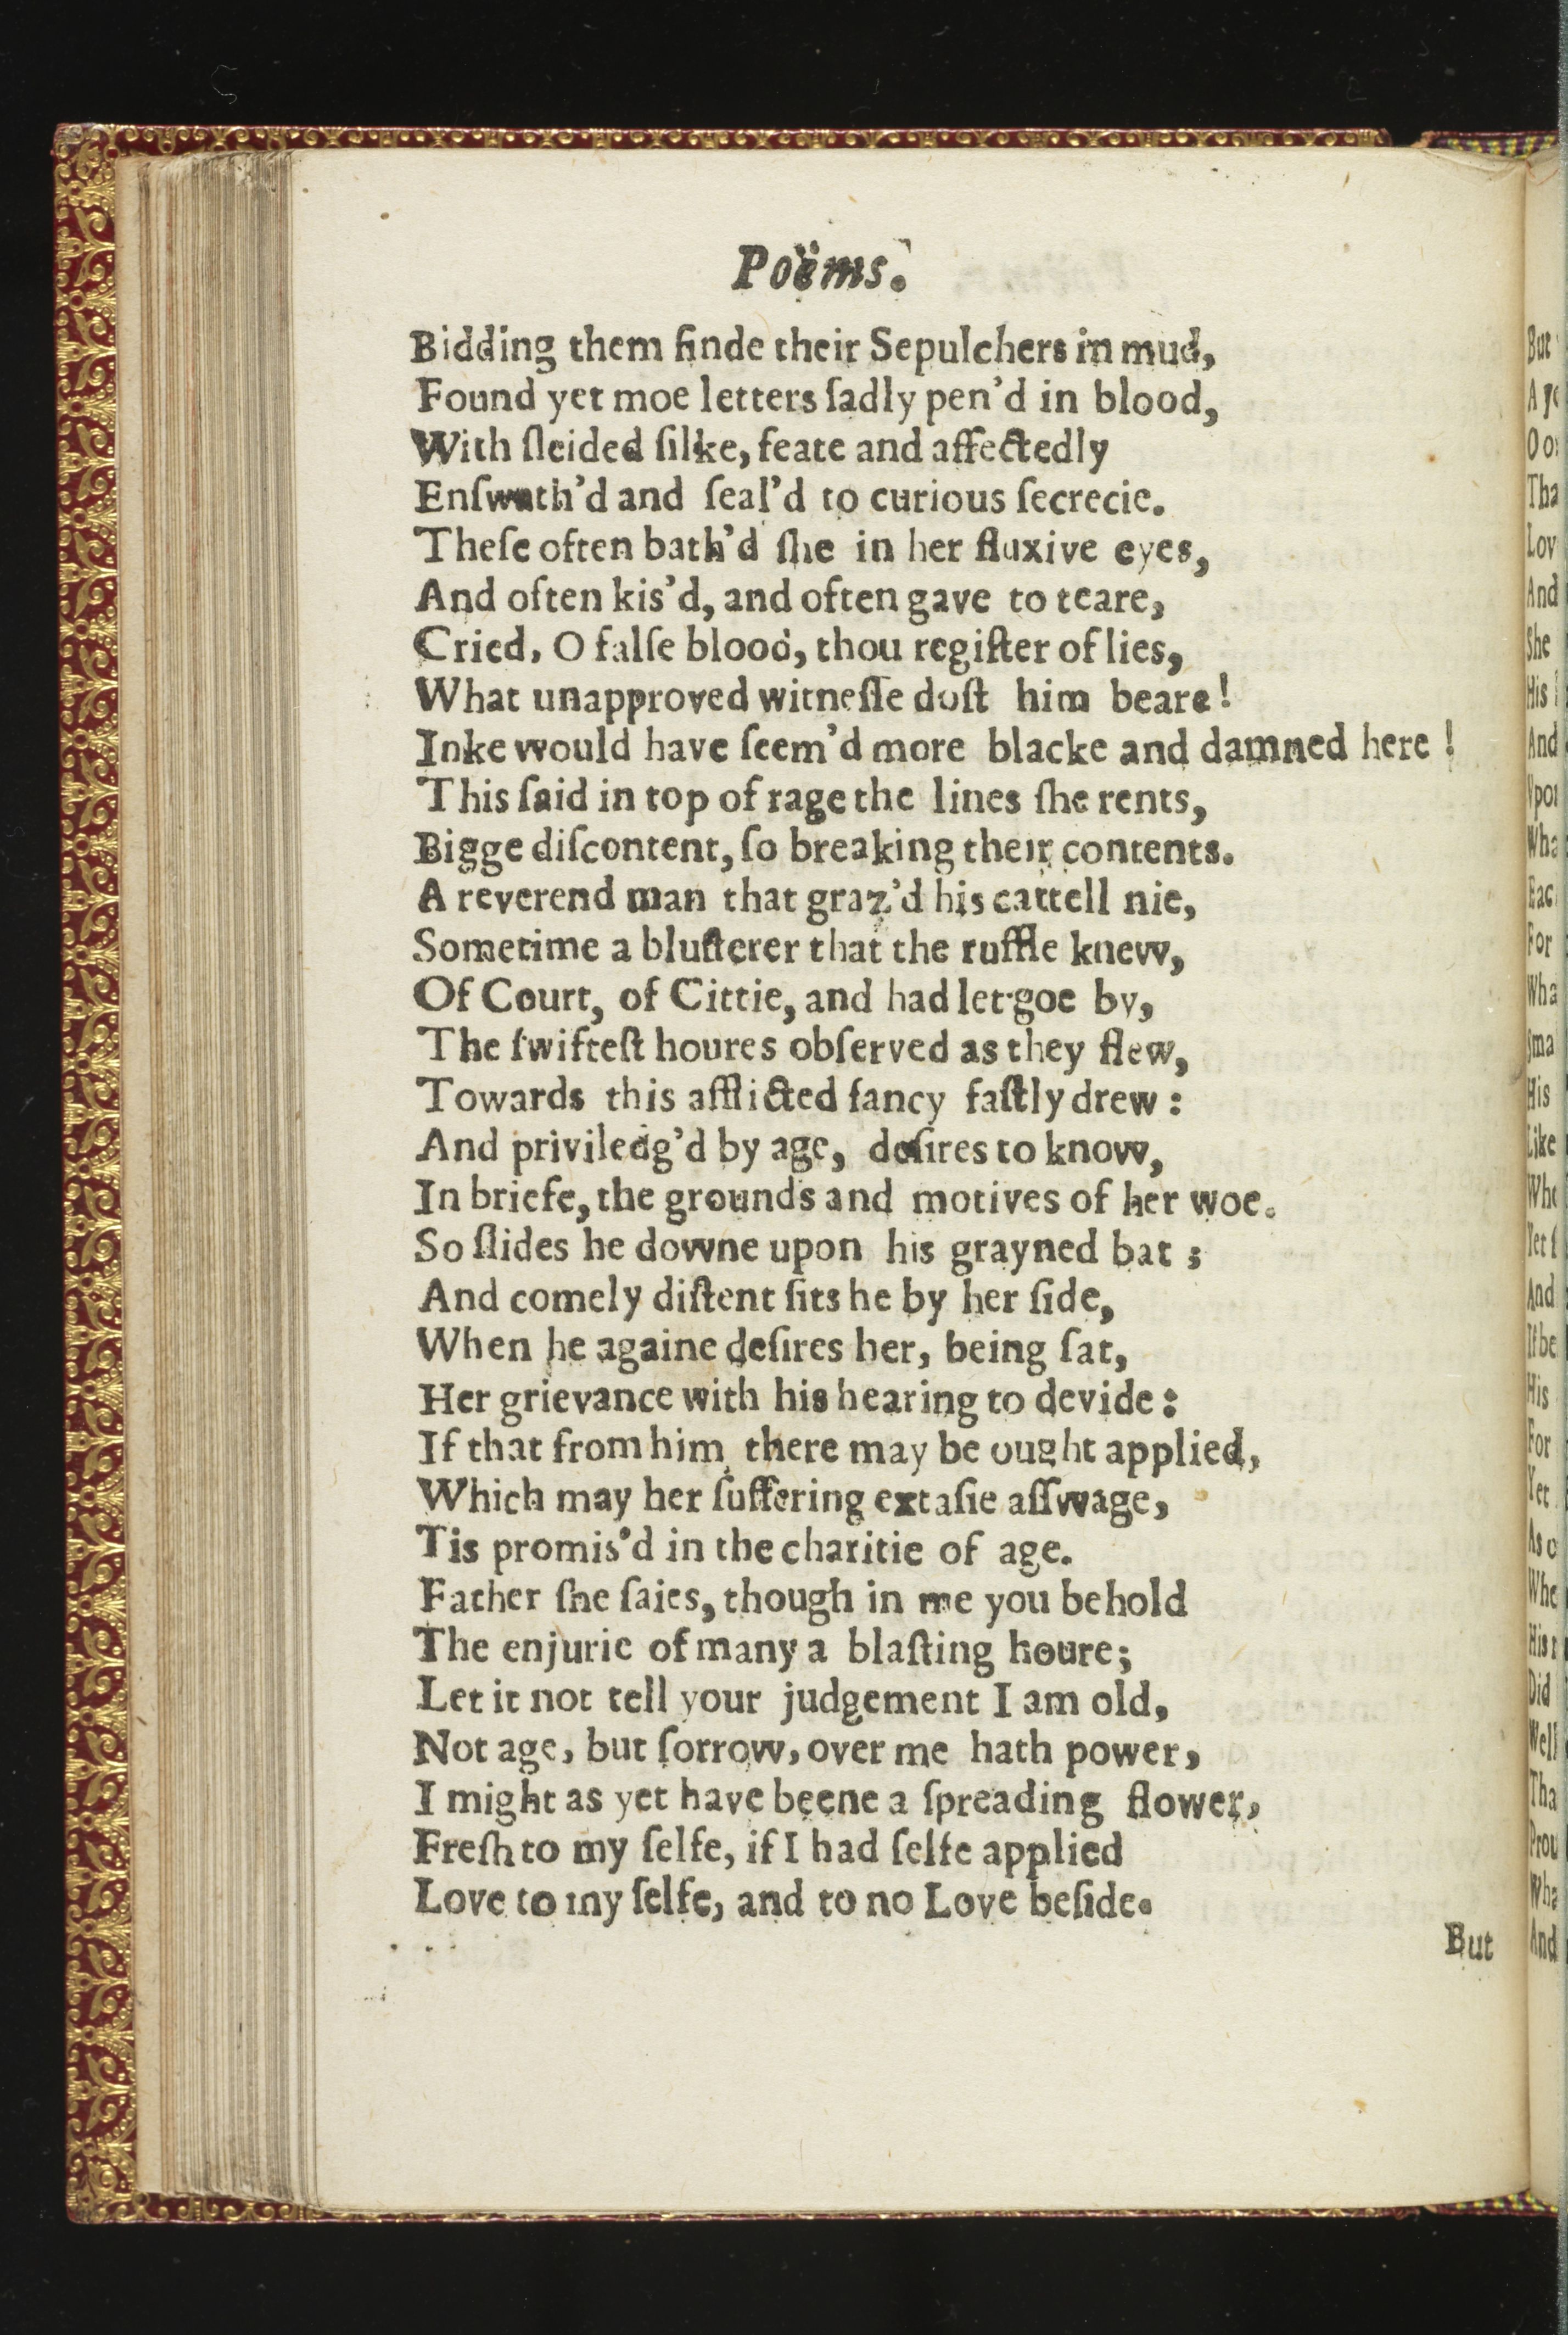 Poëms.
Bidding them finde their Sepulchers in mud,
Found yet moe letters ſadly pen'd in blood,
With ſleided ſilke, feate and affectedly
Enſwath'd and ſeal'd to curious ſecrecie.
Theſe often bath'd ſhe in her fluxive eyes,
And often kis'd, and often gave to teare,
Cried, O falſe blood, thou regiſter of lies,
What unapproved witneſſe doſt him beare!
Inke would have ſeem'd more blacke and damned here!
This ſaid in top of rage the lines ſhe rents,
Bigge diſcontent, ſo breaking their contents.
A reverend man that graz'd his cattell nie,
Sometime a bluſterer that the ruffle knew,
Of Court, of Cittie, and had let goe by,
The ſwifteſt houres obſerved as they flew,
Towards this afflicted fancy faſtly drew:
And priviledg'd by age, deſires to know,
In briefe, the grounds and motives of her woe.
So ſlides he downe upon his grayned bat;
And comely diſtent ſits he by her ſide,
When he againe deſires her, being ſat,
Her grievance with his hearing to devide:
If that from him there may be ought applied,
Which may her ſuffering extaſie aſſwage,
Tis promis'd in the charitie of age.
Father ſhe ſaies, though in me you behold
The enjurie of many a blaſting houre;
Let it not tell your judgement I am old,
Not age, but ſorrow, over me hath power,
I might as yet have beene a ſpreading flower,
Freſh to my ſelfe, if I had ſelfe applied
Love to my ſelfe, and to no Love beſide.
But
But
Oo
Tha
Lov
And
She
His
And
Vpon
Wha
Eac
For
Wha
Sma
His
Like
Whe
Yet
And
If be
His
For
Yet
As o
Whe
His
Did
Well
Tha
Prou
Wha
And